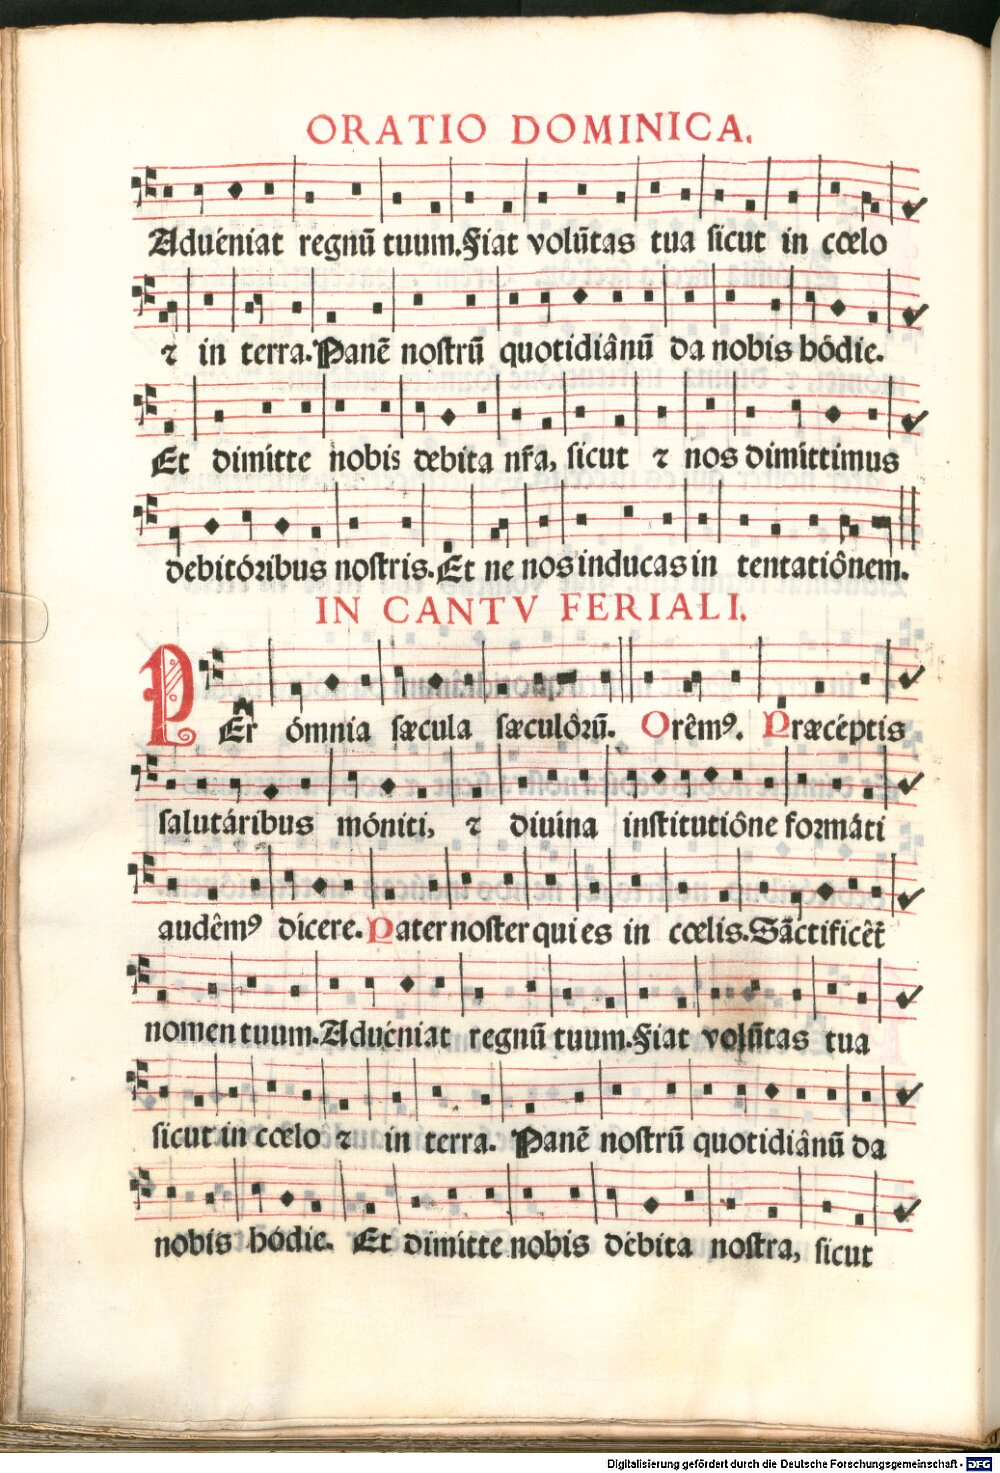 ORATIO DOMINICA.
Aduéniat regnū tuum. Fiat volūtas tua sicut in cœlo
⁊ in terra. Panē nostrū quotidiânū da nobis hódie.
Et dimitte nobis debita nr̃a, sicut ⁊ nos dimittimus
debitóribus nostris. Et ne nos inducas in tentatiônem.
IN CANTV FERIALI.
PEr̃ ómnia sæcula sæculôrū. Orêmꝰ. Præcéptis
salutáribus móniti, ⁊ diuina institutiône formáti
audêmꝰ dicere. Pater noster qui es in cœlis. Sāctificêt̃
nomen tuum. Aduéniat regnū tuum. Fiat volūtas tua
sicut in cœlo ⁊ in terra. Panē nostrū quotidiânū da
nobis hódie. Et dimitte nobis débita nostra, sicut
Digitalisierung gefördert durch die Deutsche Forschungsgemeinschaft - DFG